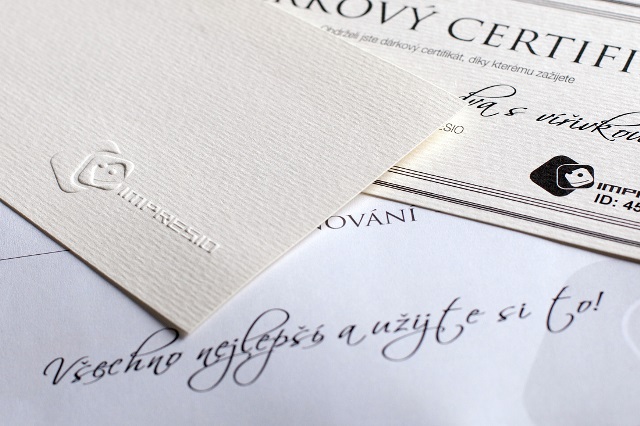 DÁRKOVÝ CERTIFI
Obdrželi jste dárkový certifikát, díky kterému zažijete
dva s vířivkou
ESIO
IMPRE
ID: 45
IMPRESIO
NOVÁNÍ
Všechno nejlepší a užijte si to!